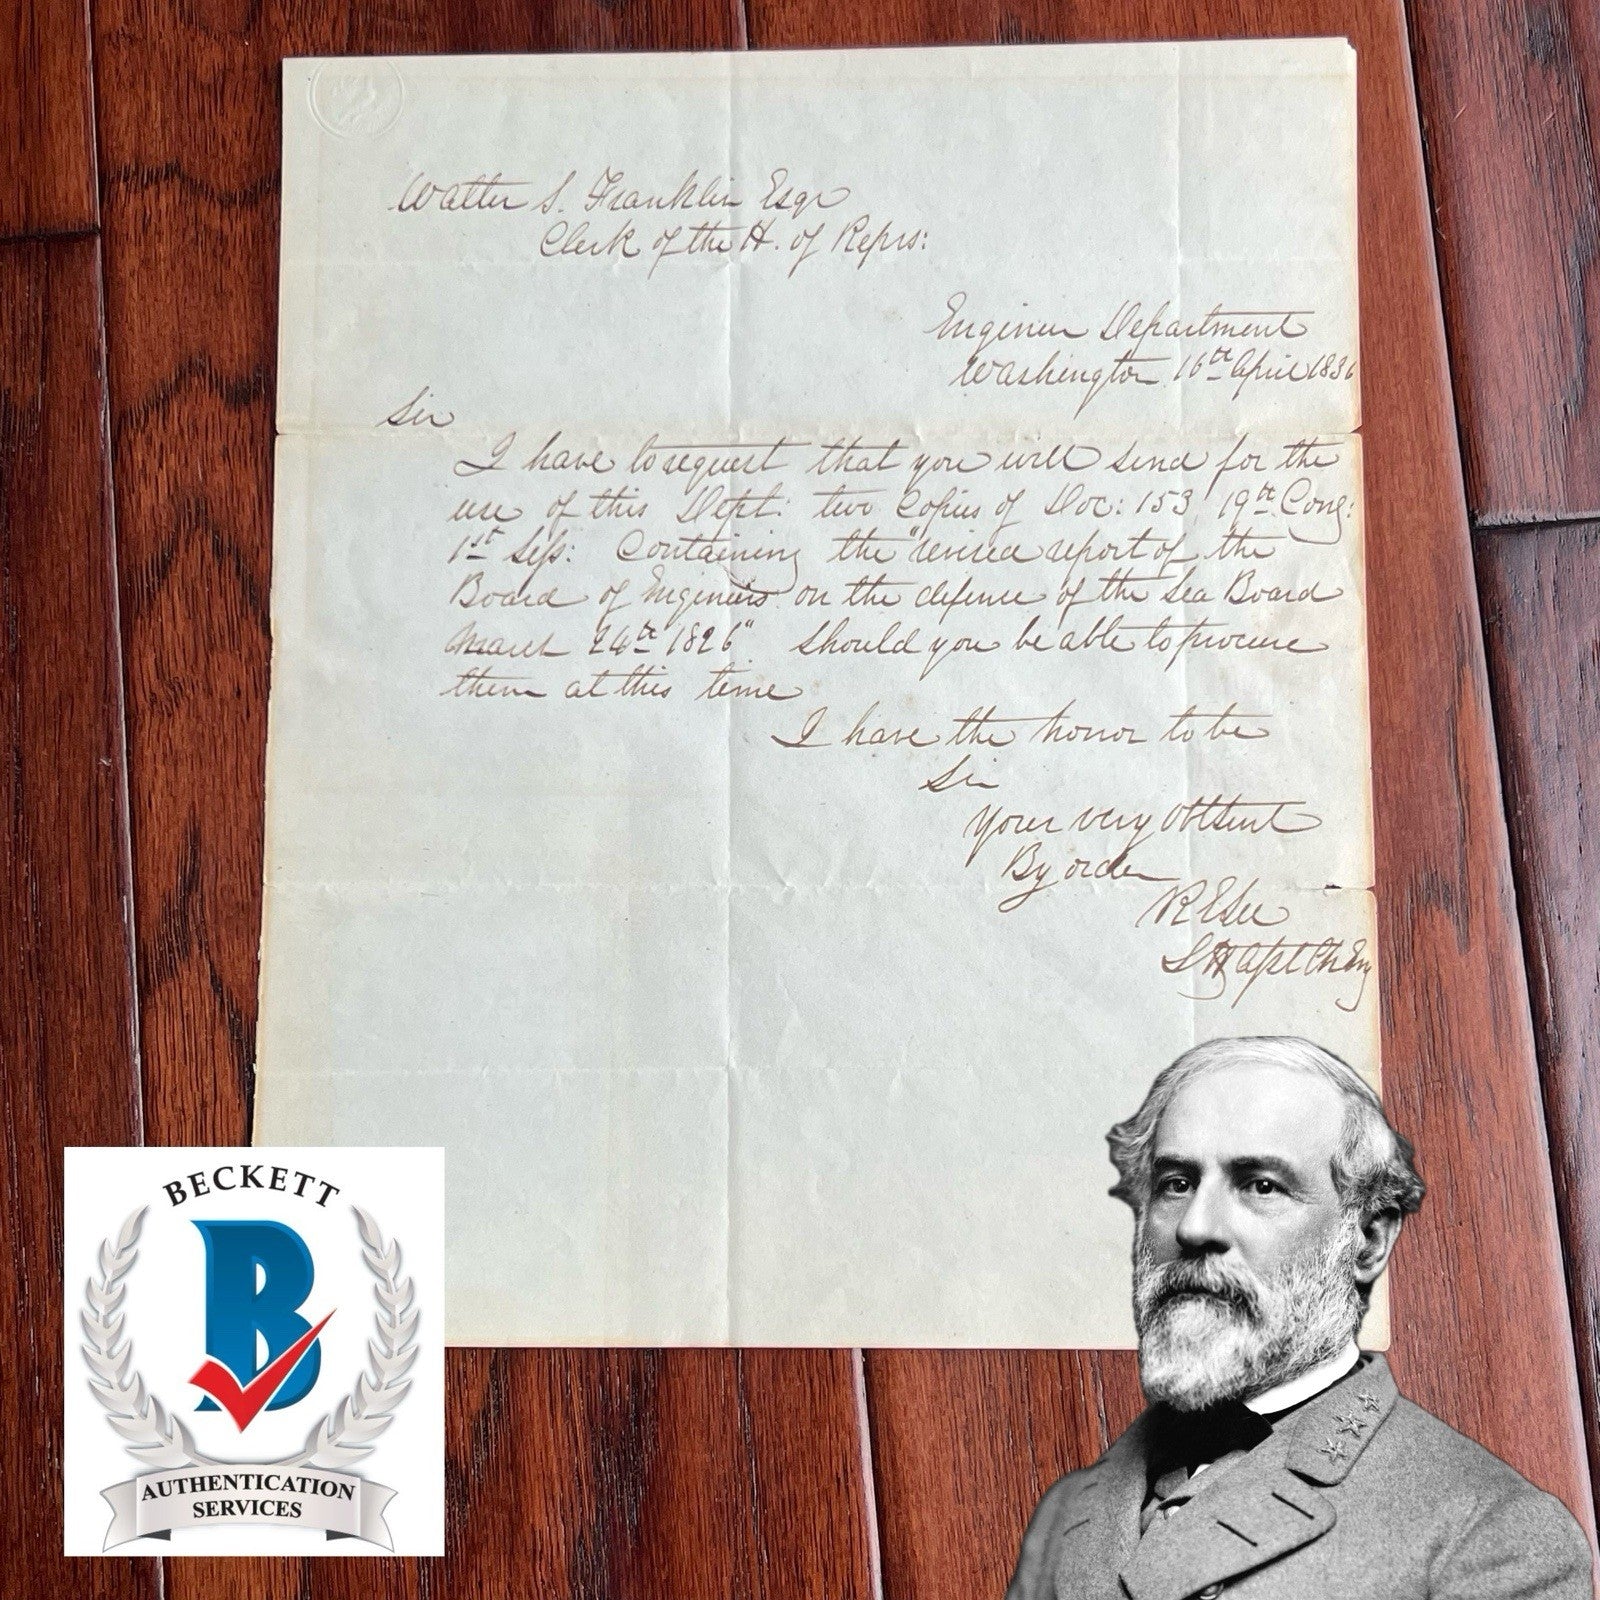 Walter S. Franklin Esqr
Clerk of the H. of Reprs:
Engineer Department
Washington 16th April 1836
Sir
I have to request that you will send for the
use of this Dept: two Copies of Doc: 153 19th Cong:
1st Sess: Containing the "revised report of the
Board of Engineers on the defence of the Sea Board
March 24th 1826" Should you be able to procure
them at this time
I have the honor to be
Sir
Your very Obt Sevt
By order
R E Lee
Lt &
BECKETT
B
AUTHENTICATION
SERVICES